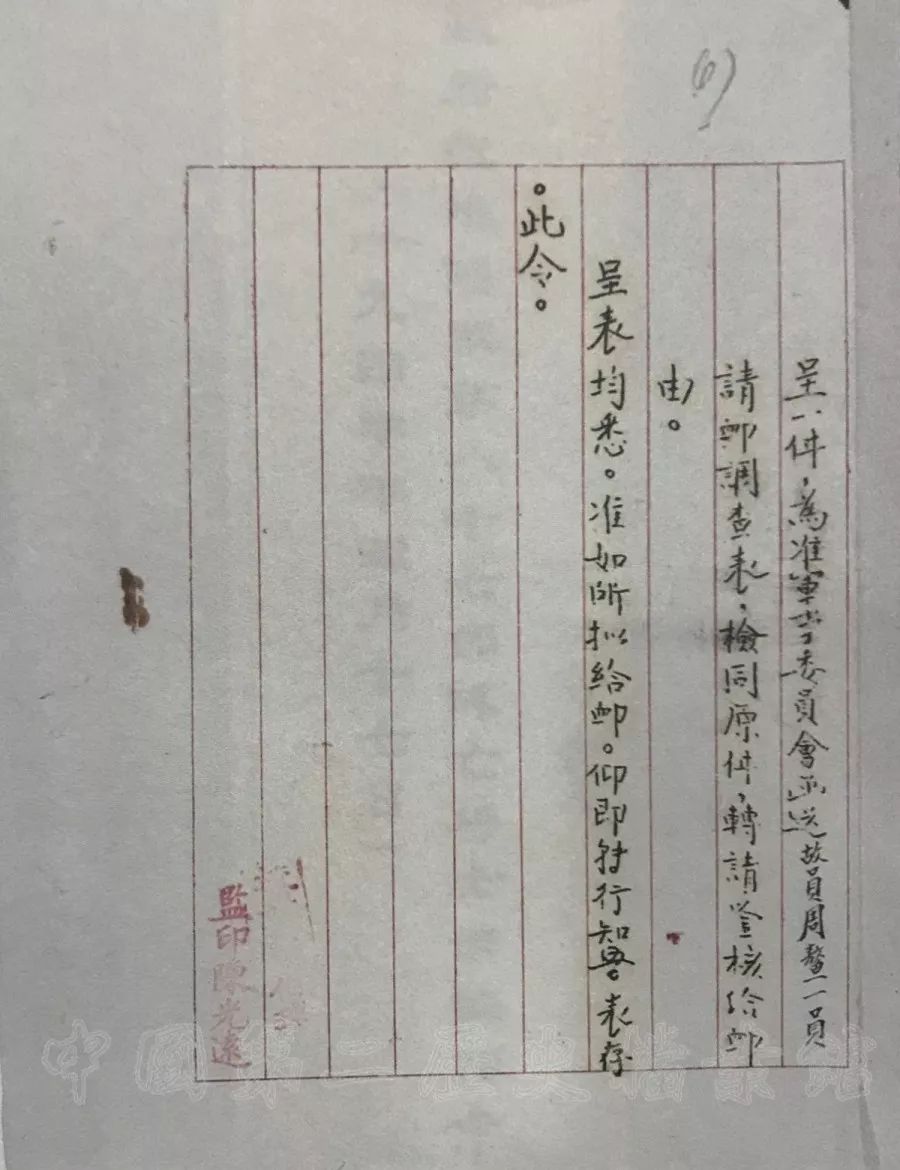 6)
呈一件，為准軍事委員會函送故員周鼇一員
請卹調查表，檢同原件，轉請鉴核給卹
由。
呈表均悉。准如所拟給卹。仰即轉行知照。表存
。此令。
監印陳光遠
中國第二歷史檔案館